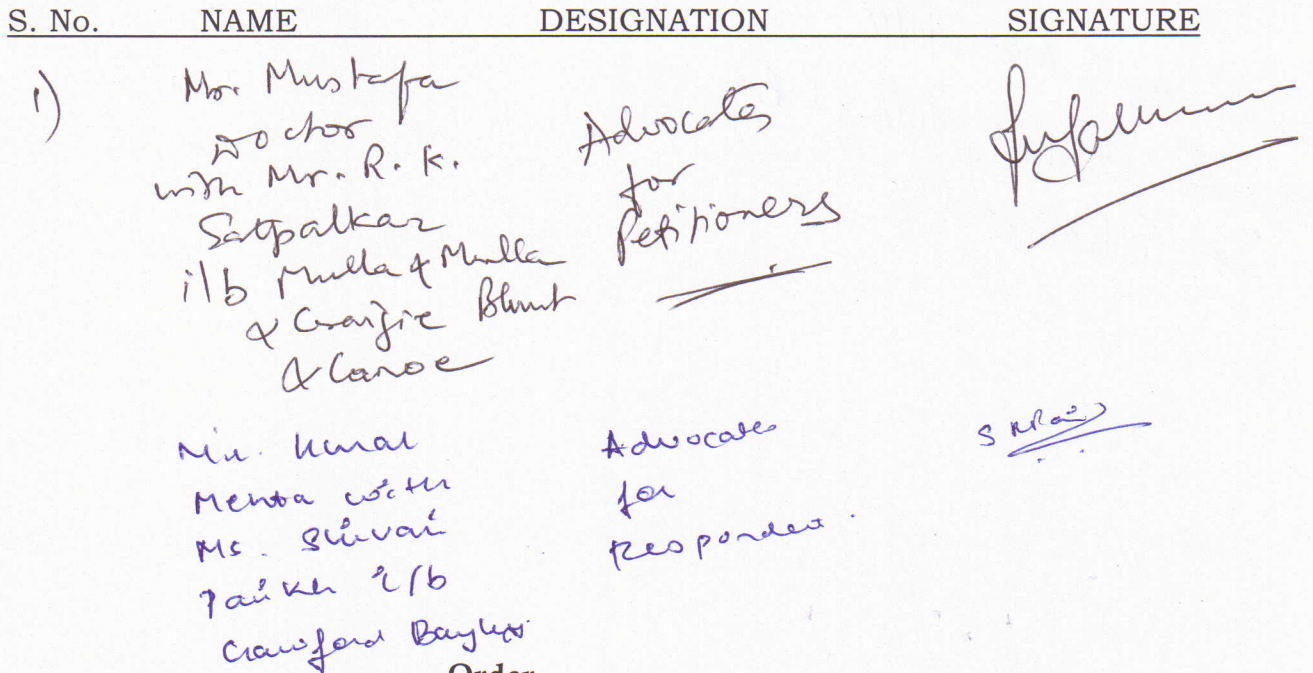 S. No. NAME DESIGNATION SIGNATURE
1) Mr. Mustafa
Doctor
with Mr. R. K.
Satpalkar
i/b Mulla & Mulla
& Craigie Blunt
& Caroe
Advocates
for
Petitioners
Mr. Kunal
Mehta with
Ms. Shivani
Parikh i/b
Crawford Bayley
Advocates
for
Respondent.
Order